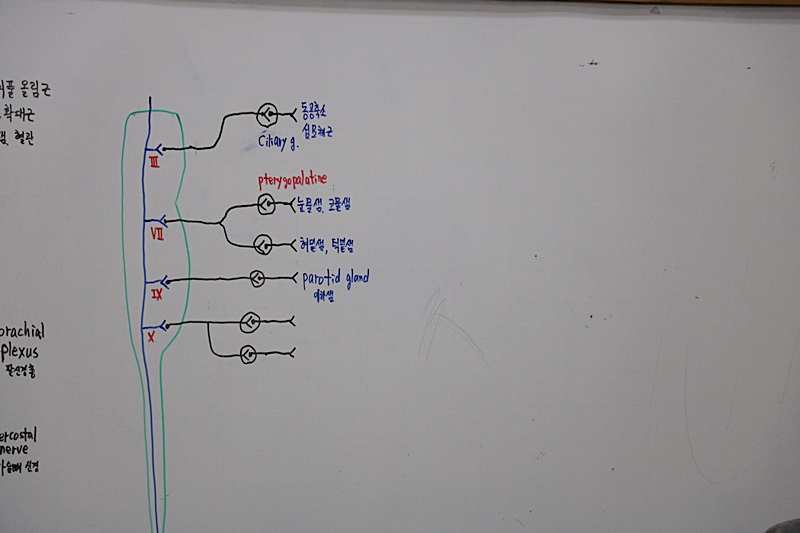 꺼풀 올림근
확대근
샘, 혈관
동공축소
섬모체근
Ciliary g.
III
pterygopalatine
눈물샘, 코물샘
VII
혀밑샘, 턱밑샘
parotid gland
이하샘
IX
X
brachial
plexus
팔신경총
ercostal
nerve
가슴뼈 신경